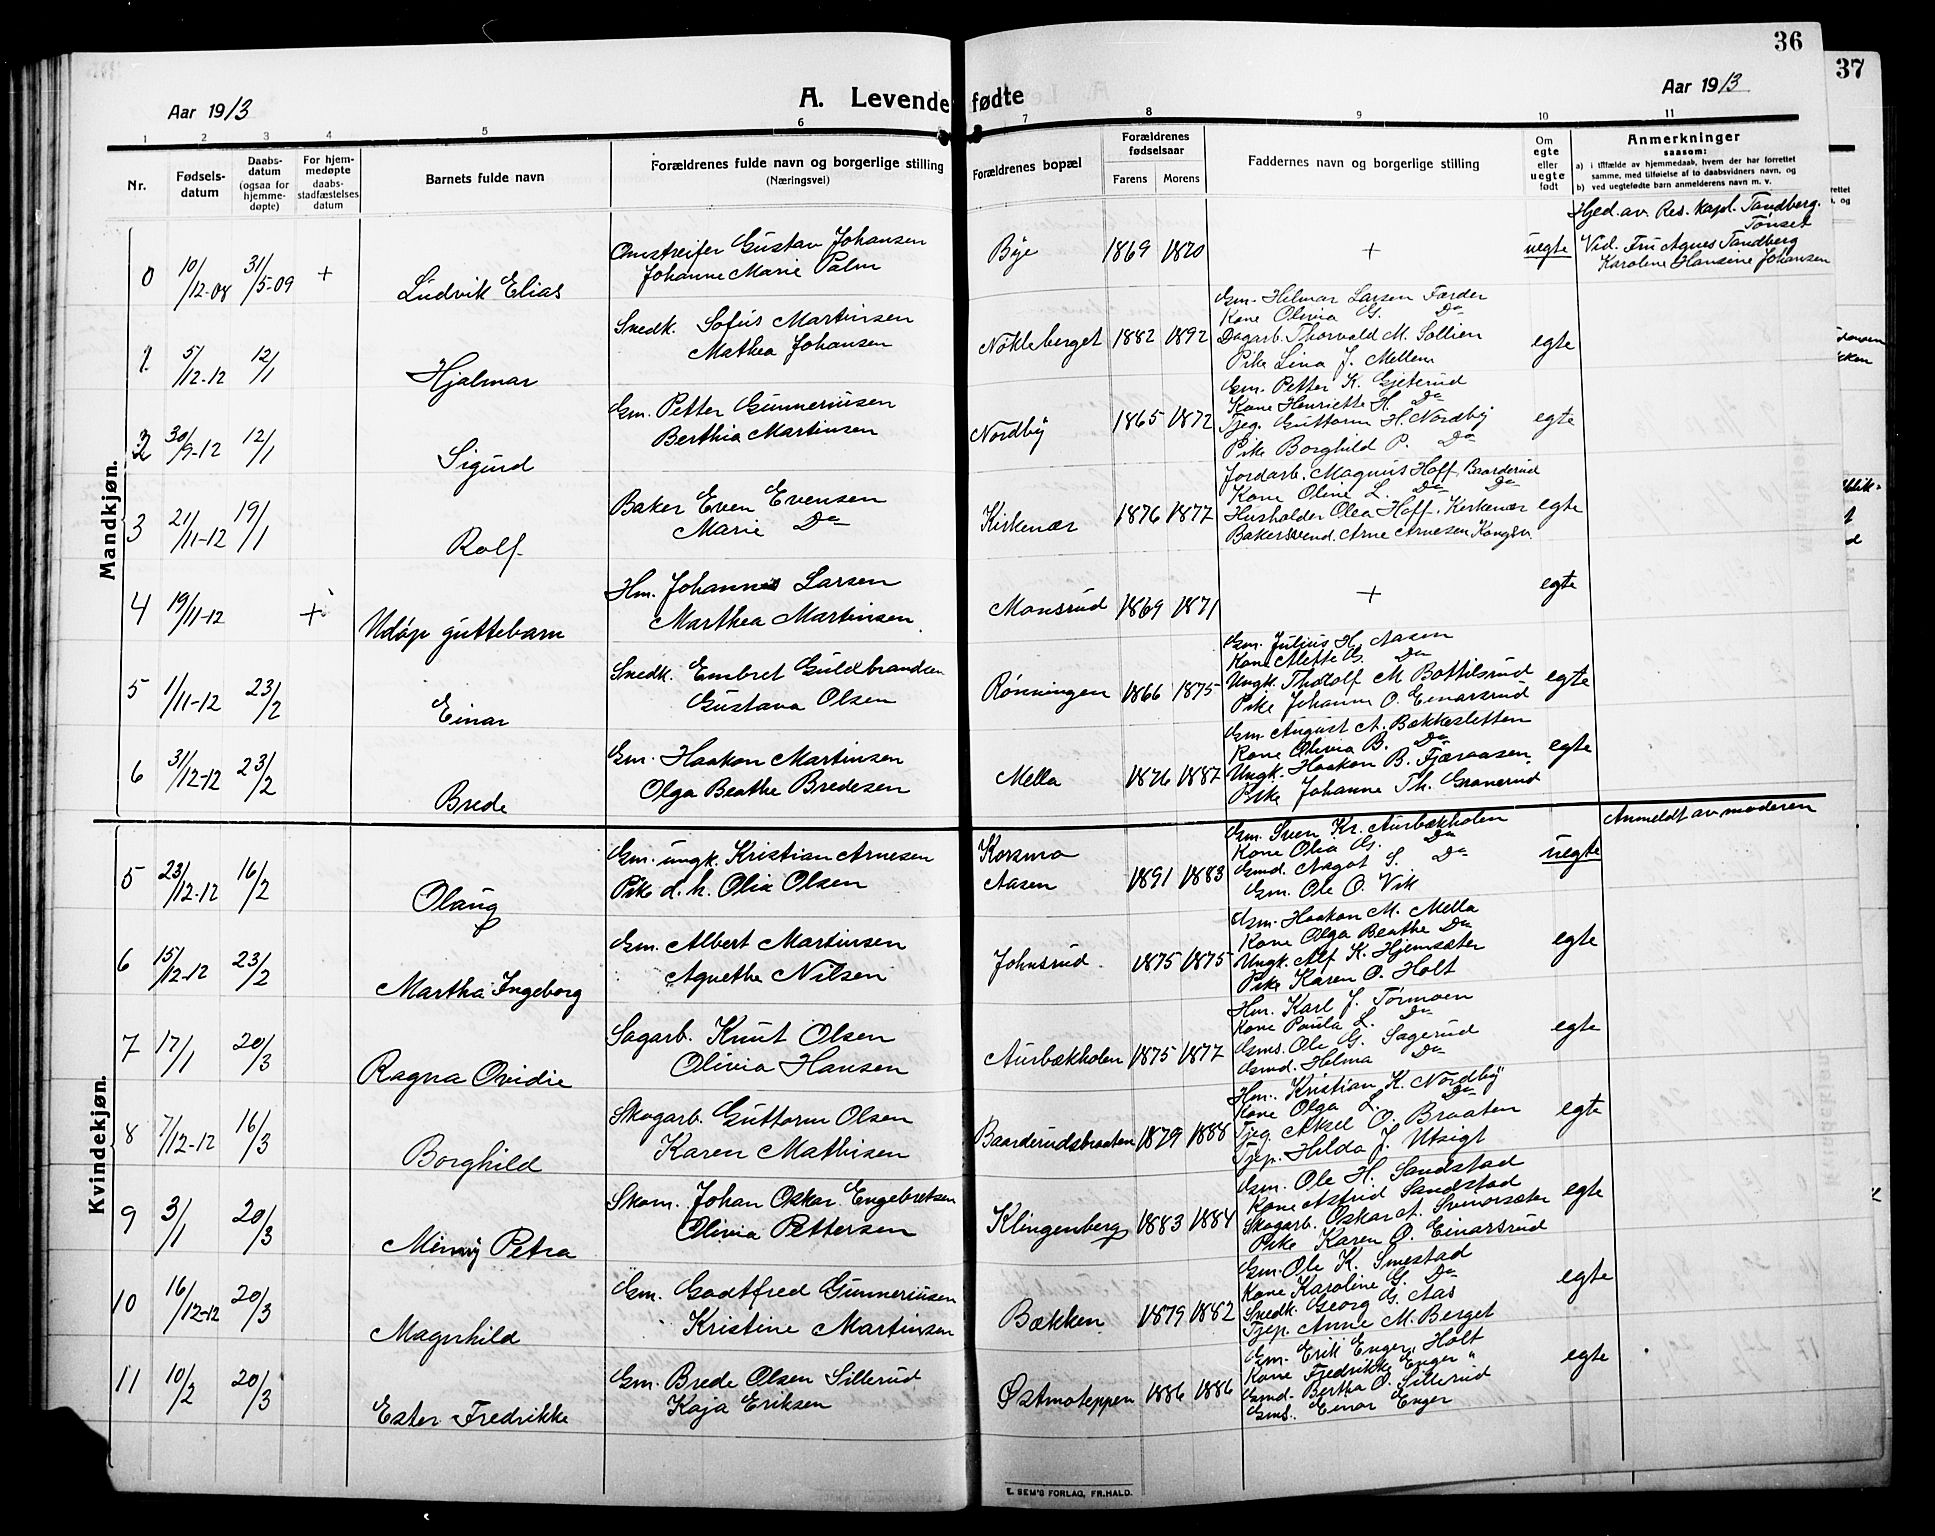 36
37
Aar 1913
A. Levende fødte
Aar 1913
1 2 3 4 5 6 7 8 9 10 11
Nr.
Fødsels-
datum
Daabs-
datum
(ogsaa for
hjemme-
døpte)
For hjem-
medøpte
daabs-
stadfæstelses
datum
Barnets fulde navn
Forældrenes fulde navn og borgerlige stilling
(Næringsvei)
Forældrenes bopæl
Forældrenes
fødselsaar
Farens Morens
Faddernes navn og borgerlige stilling
Om
egte
eller
uegte
født
Anmerkninger
saasom:
a) i tilfælde av hjemmedaab, hvem der har forrettet
samme, med tilføielse af to daabsvidners navn, og
b) ved uegtefødte barn anmelderens navn m. v.
Mandkjøn.
0 10/12-08 31/5-09 + Ludvik Elias
Omstreifer Gustav Johansen
Johanne Marie Palm
Bye 1869 1870 + uegte
Hjed. av. Res. Kapl. Tandberg.
Tønset
Vid. Fru Agnes Tandberg
Karoline Hansine Johansen
1 5/12-12 12/1 Hjalmar
Snedk. Sofus Martinsen
Mathea Johansen
Nökleberget 1882 1892
Gm. Helmar Larsen Færder
Kone Olivia G. Do
Dagarb. Thorvald M. Sollien
Pike Lina J. Mellem
egte
2 30/9-12 12/1 Sigurd
Gm. Petter Gunneriusen
Berthia Martinsen
Nordby 1865 1872
Gm. Petter K. Gjeterud
Kone Henriette H. Do
Tjeg. Guttorm H. Nordby
Pike Borghild P. Do
egte
3 21/11-12 19/1 Rolf
Baker Even Evensen
Marie Do
Kirkenær 1876 1877
Jordarb. Magnus Hoff, Baarderud
Kone Oline L. Do Do
Husholder Olea Hoff, Kirkenær
Bakersvend. Arne Arnesen Kongsv.
egte
4 19/11-12 + Udøp guttebarn
Hm. Johannes Larsen
Marthea Martinsen
Monsrud 1869 1871 + egte
5 1/11-12 23/2 Einar
Snedk. Embret Guldbrandsen
Gustava Olsen
Rønningen 1866 1875
Gm. Julius H. Aasen
Kone Mette G. Do
Ungk. Thorolf M Bottilsrud
Pike Johanne O. Einarsrud
egte
6 31/12-12 23/2 Brede
Gm. Haakon Martinsen
Olga Beathe Bredesen
Mella 1876 1887
Gm. August A. Bækkesletten
Kone Olivia B. Do
Ungk. Haakon B. Fjæraasen
Pike Johanne Th. Granerud
egte
Kvindekjøn.
5 23/12-12 16/2 Olaug
Gm. ungk. Kristian Arnesen
Pike d. h. Olia Olsen
Korsmo
Aasen 1891 1883
Gm. Sven Kr. Aurbækholen
Kone Olia G. Do
Gmd. Aagot S. Do
Gm. Ole O. Vik
uegte Anmeldt av moderen
6 15/12-12 23/2 Martha Ingeborg
Gm. Albert Martinsen
Agnethe Nilsen
Johnsrud. 1875 1875
Gm. Haakon M. Mella
Kone Olga Beathe Do
Ungk. Alf K. Hjemsæter
Pike Karen O. Holt
egte
7 17/1 20/3 Ragna Ovidie
Sagarb. Knut Olsen
Olivia Hansen
Aurbækholen 1875 1877
Hm. Karl J. Tørmoen
Kone Paula L. Do
Gms. Ole G. Sagerud
Gmd. Helma Do
egte
8 7/12-12 16/3 Borghild
Skogarb. Guttorm Olsen
Karen Mathisen
Baarderudsbraaten 1879 1888
Hm. Kristian K. Nordby
Kone Olga L. Do
Tjeg. Aksel O. Braaten
Tjep. Hilda J. Utsigt
egte
9 3/1 20/3 Minny Petra
Skom. Johan Oskar Engebretsen
Olivia Pettersen
Klingenberg 1883 1884
Gm. Ole H. Sandstad
Kone Astrid Sandstad
Skogarb. Oskar A. Svenorsæter
Pike Karen O. Einarsrud
egte
10 16/12-12 20/3 Magnhild
Gm. Godtfred Gunneriusen
Kristine Martinsen
Bækken 1879 1882
Gm. Ole K. Smestad
Kone Karoline G. Do
Snedk. Georg G. Aas
Tjep. Anne M. Berget
egte
11 10/2 20/3 Ester Fredrikke
Gm. Brede Olsen Sillerud
Kaja Eriksen
Østmoteppen 1886 1886
Gm. Erik Enger, Holt
Kone Fredrikke Enger "
Gmd. Bertha O. Sillerud
Gms. Einar Enger
egte
E. SEM'S FORLAG, FR.HALD.